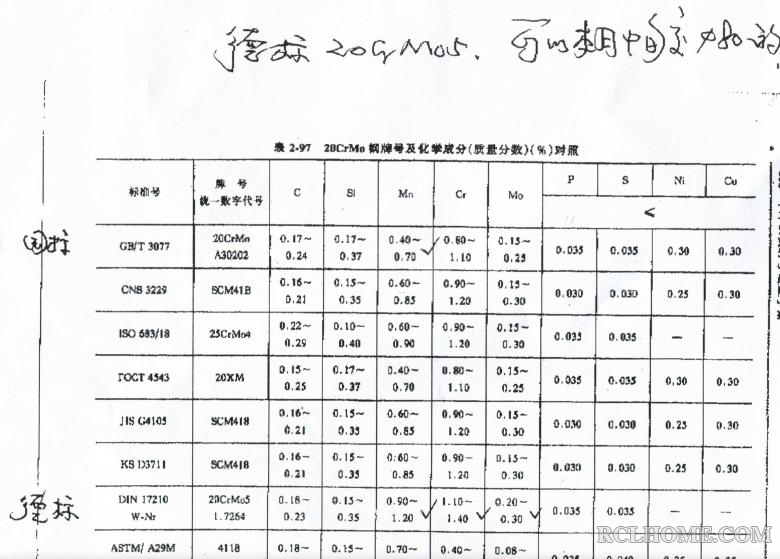 德标 20CrMo5.
表 2-97 20CrMo 钢牌号及化学成分(质量分数)(%)对照
标准号 牌 号 统一数字代号 C Si Mn Cr Mo P S Ni Cu
<
国标
GB/T 3077 20CrMo A30202 0.17~0.24 0.17~0.37 0.40~0.70 0.80~1.10 0.15~0.25 0.035 0.035 0.30 0.30
CNS 3229 SCM41B 0.16~0.21 0.15~0.35 0.60~0.85 0.90~1.20 0.15~0.30 0.030 0.030 0.25 0.30
ISO 683/18 25CrMo4 0.22~0.29 0.10~0.40 0.60~0.90 0.90~1.20 0.15~0.30 0.035 0.035 — —
ГОСТ 4543 20XM 0.15~0.25 0.17~0.37 0.40~0.70 0.80~1.10 0.15~0.25 0.035 0.035 0.30 0.30
JIS G4105 SCM418 0.16~0.21 0.15~0.35 0.60~0.85 0.90~1.20 0.15~0.30 0.030 0.030 0.25 0.30
KS D3711 SCM418 0.16~0.21 0.15~0.35 0.60~0.85 0.90~1.20 0.15~0.30 0.030 0.030 0.25 0.30
德标
DIN 17210 W-Nr 20CrMo5 1.7264 0.18~0.23 0.15~0.35 0.90~1.20 1.10~1.40 0.20~0.30 0.035 0.035 — —
ASTM/A29M 4118 0.18~ 0.15~ 0.70~ 0.40~ 0.08~
RCLHOME.COM